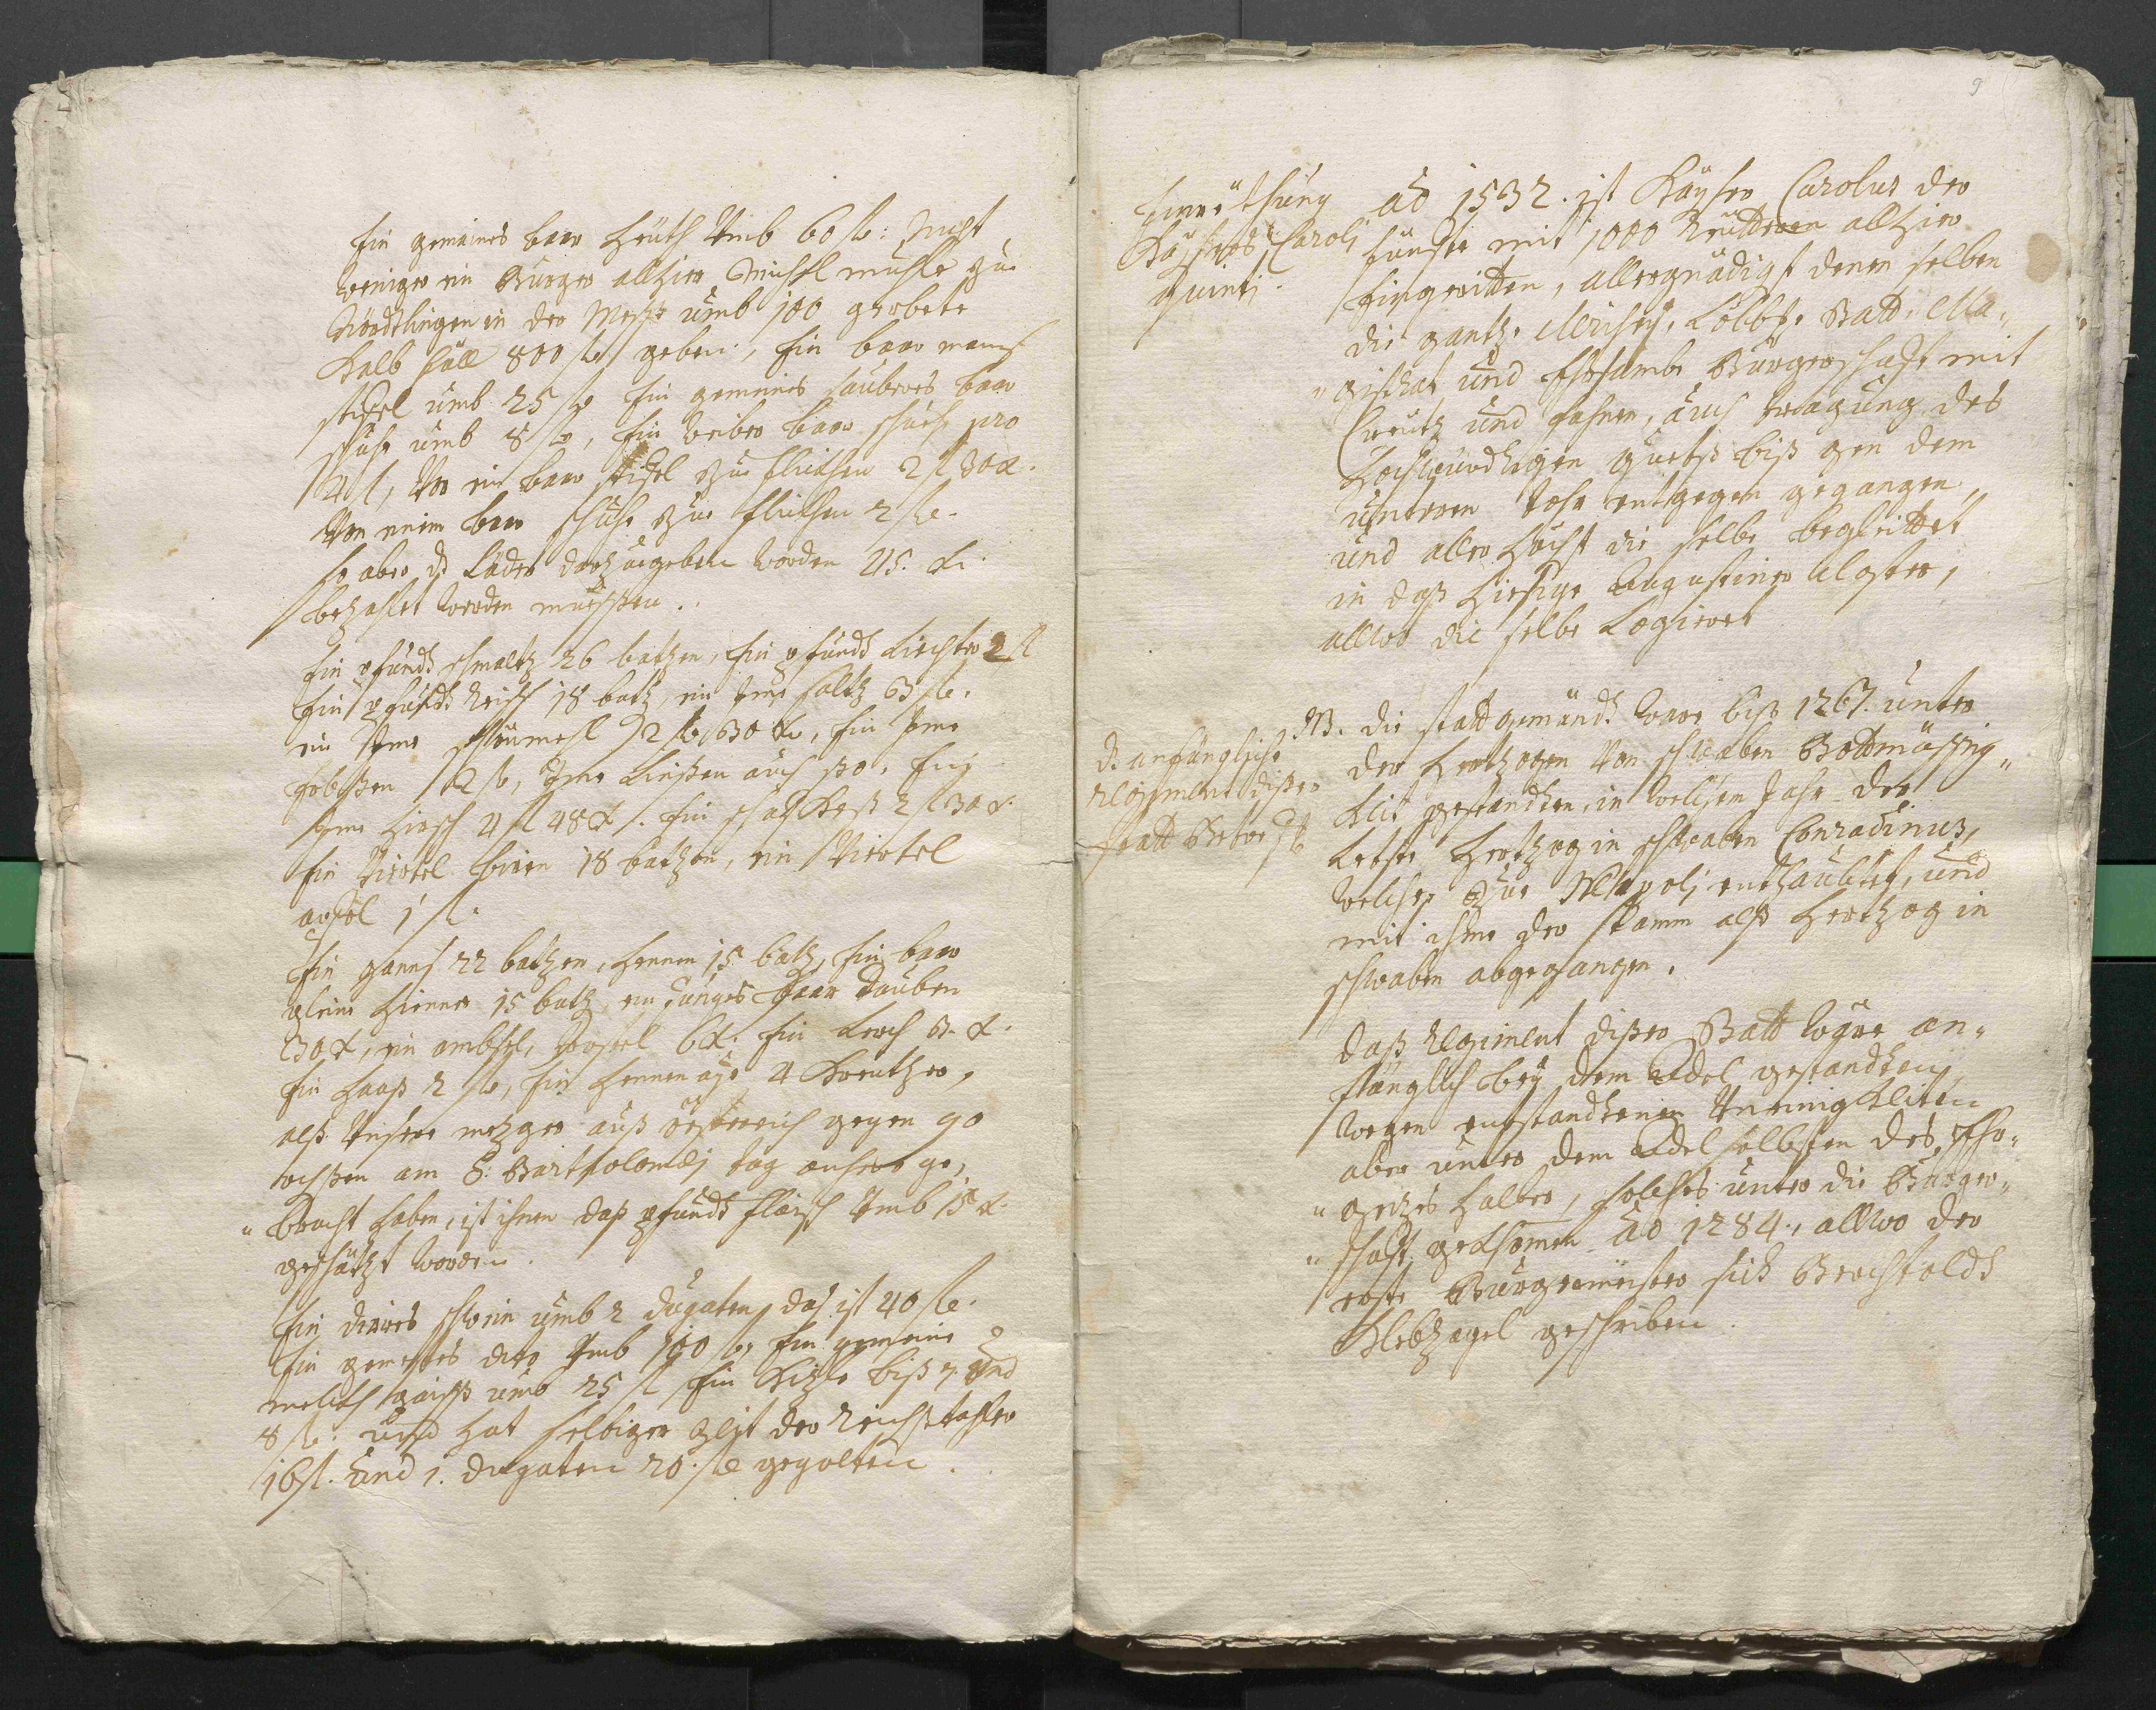 Ein gemeines baar heüth Vmb 60 fl: Nicht
weniger ein Burger allhier Michel mühle zue
Nördtlingen in der Mess umb 100 gerbete
Kalb fäll 800 fl geben, Ein baar manß
stifel umb 25 fl Ein gemeines sauberes baar
schuhe umb 8 fl, Ein weiber baar schuh pro
4 fl, Von ein baar stifel zue flickhen 2 fl 30 x.
Von einem baar schuhe zue flickhen 2 fl.
so aber d. Läder darzue geben worden 45. x.
bezahlet werden müessen.
Ein pfundt schmaltz 26 batzen, Ein pfundt Liechter 2 fl
Ein pfundt Reiß 18 batz, ein Imi saltz 3 fl.
ein Imi mehl 2 fl 30 x, Ein Imi
Erbßen 12 fl, Imi Linßen auch so. Ein
Imi Hirsch 4 fl 48 x. Ein schaf Keß 2 fl 30 x.
Ein Viertel biren 18 batzen, ein Viertel
apfel 1 fl.
Ein ganß 22 batzen, hennen 15 batz, Ein baar
gleine hiener 15 batz, ein Junges Paar Tauben
30 x, ein ambsel, 6 x. Ein Lerch 3. x.
Ein Haaß 2 fl, Ein hennen aye 4 Kreutzer,
alß Unsere metzger auß össterreich gegen 90
ochßen am S: Bartholomæj tag anhero ge„
„bracht haben, ist ihnen daß pfundt fleisch Vmb 15 x.
geschätzt worden.
Ein dirres schwein umb 2 Dugaten, das ist 40 fl.
Ein gemestes dito Vmb 100 fl, Ein gemeine
melckh gaiß umb 25 fl Ein Kizle biß 7. Und
8 fl. und hat selbiger Zeit der Reichsthaler
16 fl. Und 1. Dugaten 20. fl gegolten.
9
Einreithung
Kaysers Caroli
quinti.
Aõ 1532. ist Kayser Carolus der
fünfte mit 1000 Reütteren allhier
Eingeritten, allergnädigst denen selben
die gantze Clerisey, Löbl. Statt Ma„
„gistrat und Ehrsambe Burgerschaft mit
Creutz und fahnen, auch tragung des
Hochwürdtigen guets biß gen dem
unteren Tohr entgegen gegangen,
und aller Höchst die selbe begleittet
in daß hiesige Augustiner Closter,
allwo die selbe Logieret
d. anfängliche
Regiment dißer
statt
NB. die statt Gemündt ware biß 1267. unter
der Hertzogen Von schwaben Bottmässig„
keit gestandten, in welchem Jahr der
Letste Hertzog in schwaben Conradinus,
welcher zue Neapoli enthaubtet, und
mit ihme der stamm alß Hertzog in
schwaben abgegangen.
Daß Regiment dißer Statt ware an„
fänglich bey dem Adel gestandten,
wegen entstandtenen Uneinigkeiten
aber unter dem Adel selbsten des Ehr„
„geizes halber, solches unter die Burger„
„schaft gekhomen Aõ 1284., allwo der
erste Burgermeister sich Berchtoldt
Klebzagel geschriben.